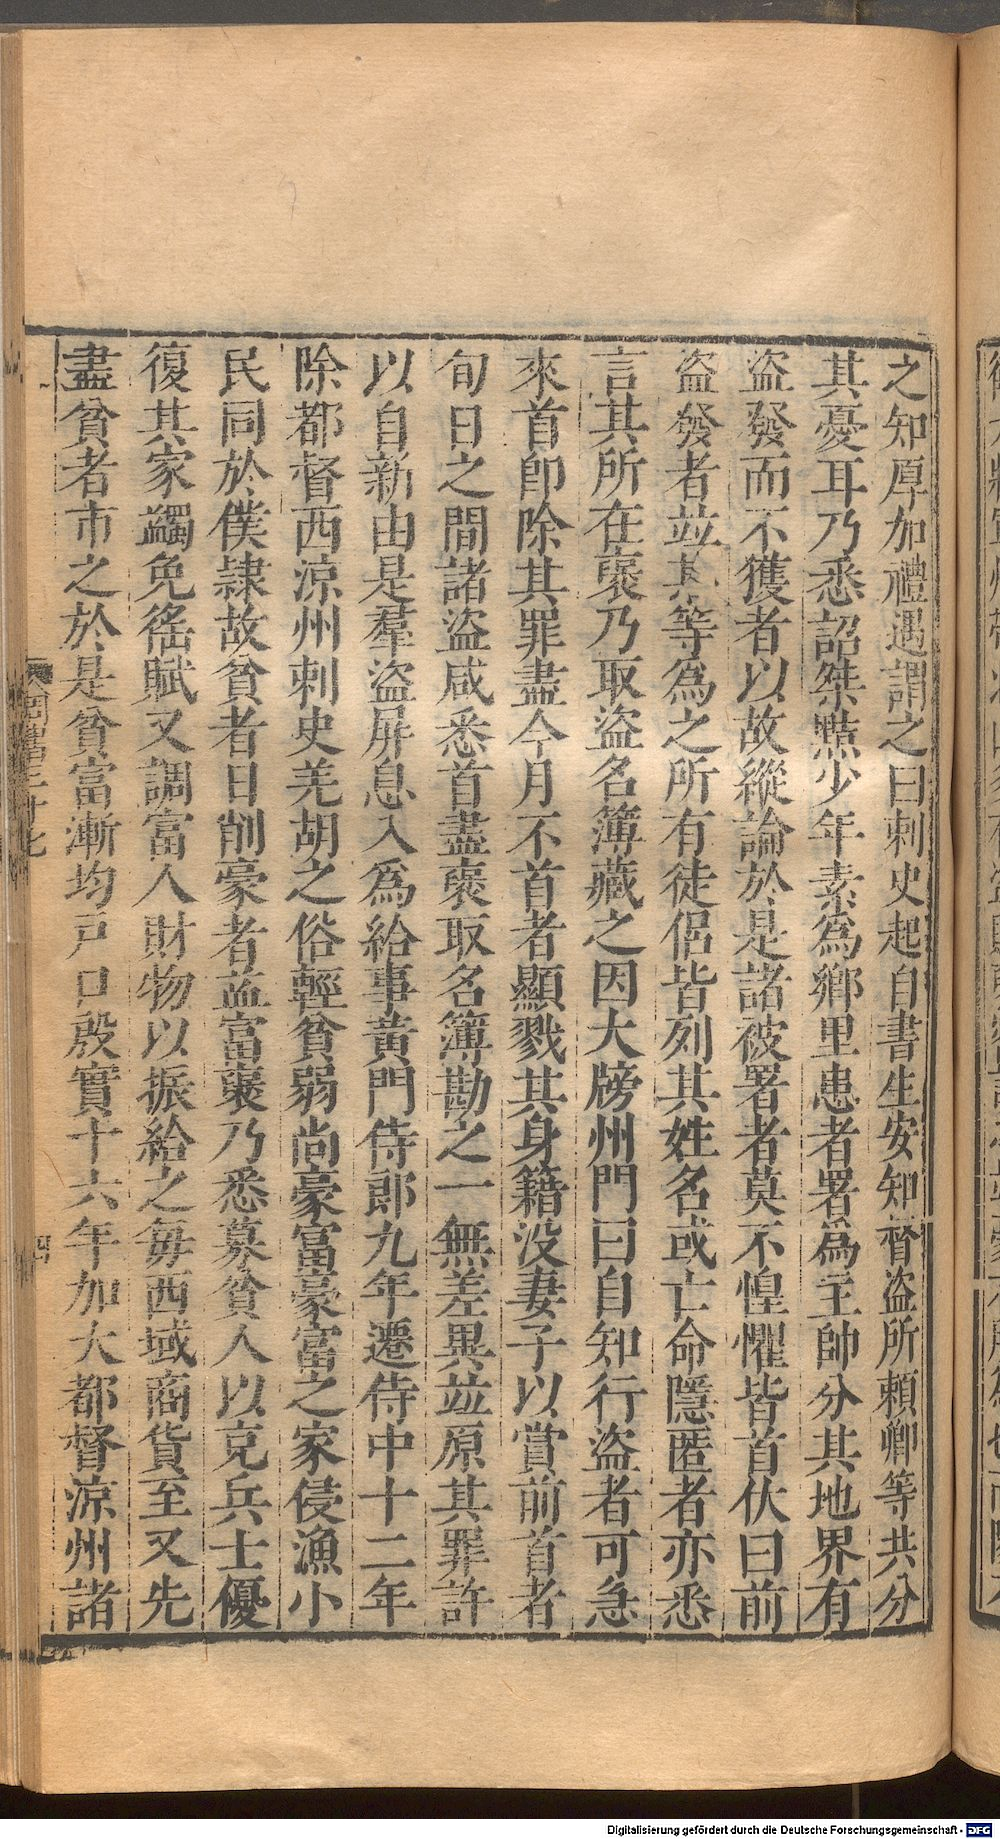 之知厚加禮遇謂之曰刺史起自書生安知督盜所頼卿等共分
其憂耳乃悉詔桀黠少年素為鄉里患者署為主帥分其地界有
盜發而不獲者以故縱論於是諸被署者莫不惶懼皆首伏曰前
盜發者並某等為之所有徒侶皆列其姓名或亡命隱匿者亦悉
言其所在褒乃取盜名簿藏之因大牓州門曰自知行盜者可急
來首卽除其罪盡今月不首者顯戮其身籍沒妻子以賞前首者
旬日之間諸盜咸悉首盡褒取名簿勘之一無差異並原其罪許
以自新由是羣盜屏息入為給事黃門侍郎九年遷侍中十二年
除都督西涼州刺史羌胡之俗輕貧弱尚豪富豪富之家侵漁小
民同於僕隷故貧者日削豪者益富褒乃悉募貧人以充兵士優
復其家蠲免徭賦又調富人財物以振給之每西域商貨至又先
盡貧者市之於是貧富漸均戸口殷實十六年加大都督涼州諸
周書三十七
四
Digitalisierung gefördert durch die Deutsche Forschungsgemeinschaft - DFG